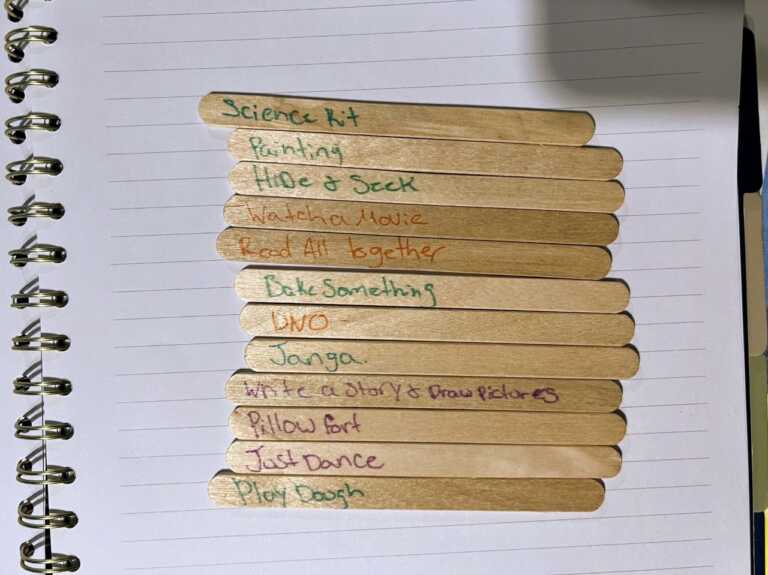 Science Kit
Painting
Hide & Seek
Watch a Movie
Read All together
Bake Something
UNO
Janga.
Write a Story & Draw Pictures
Pillow fort
Just Dance
Play Dough